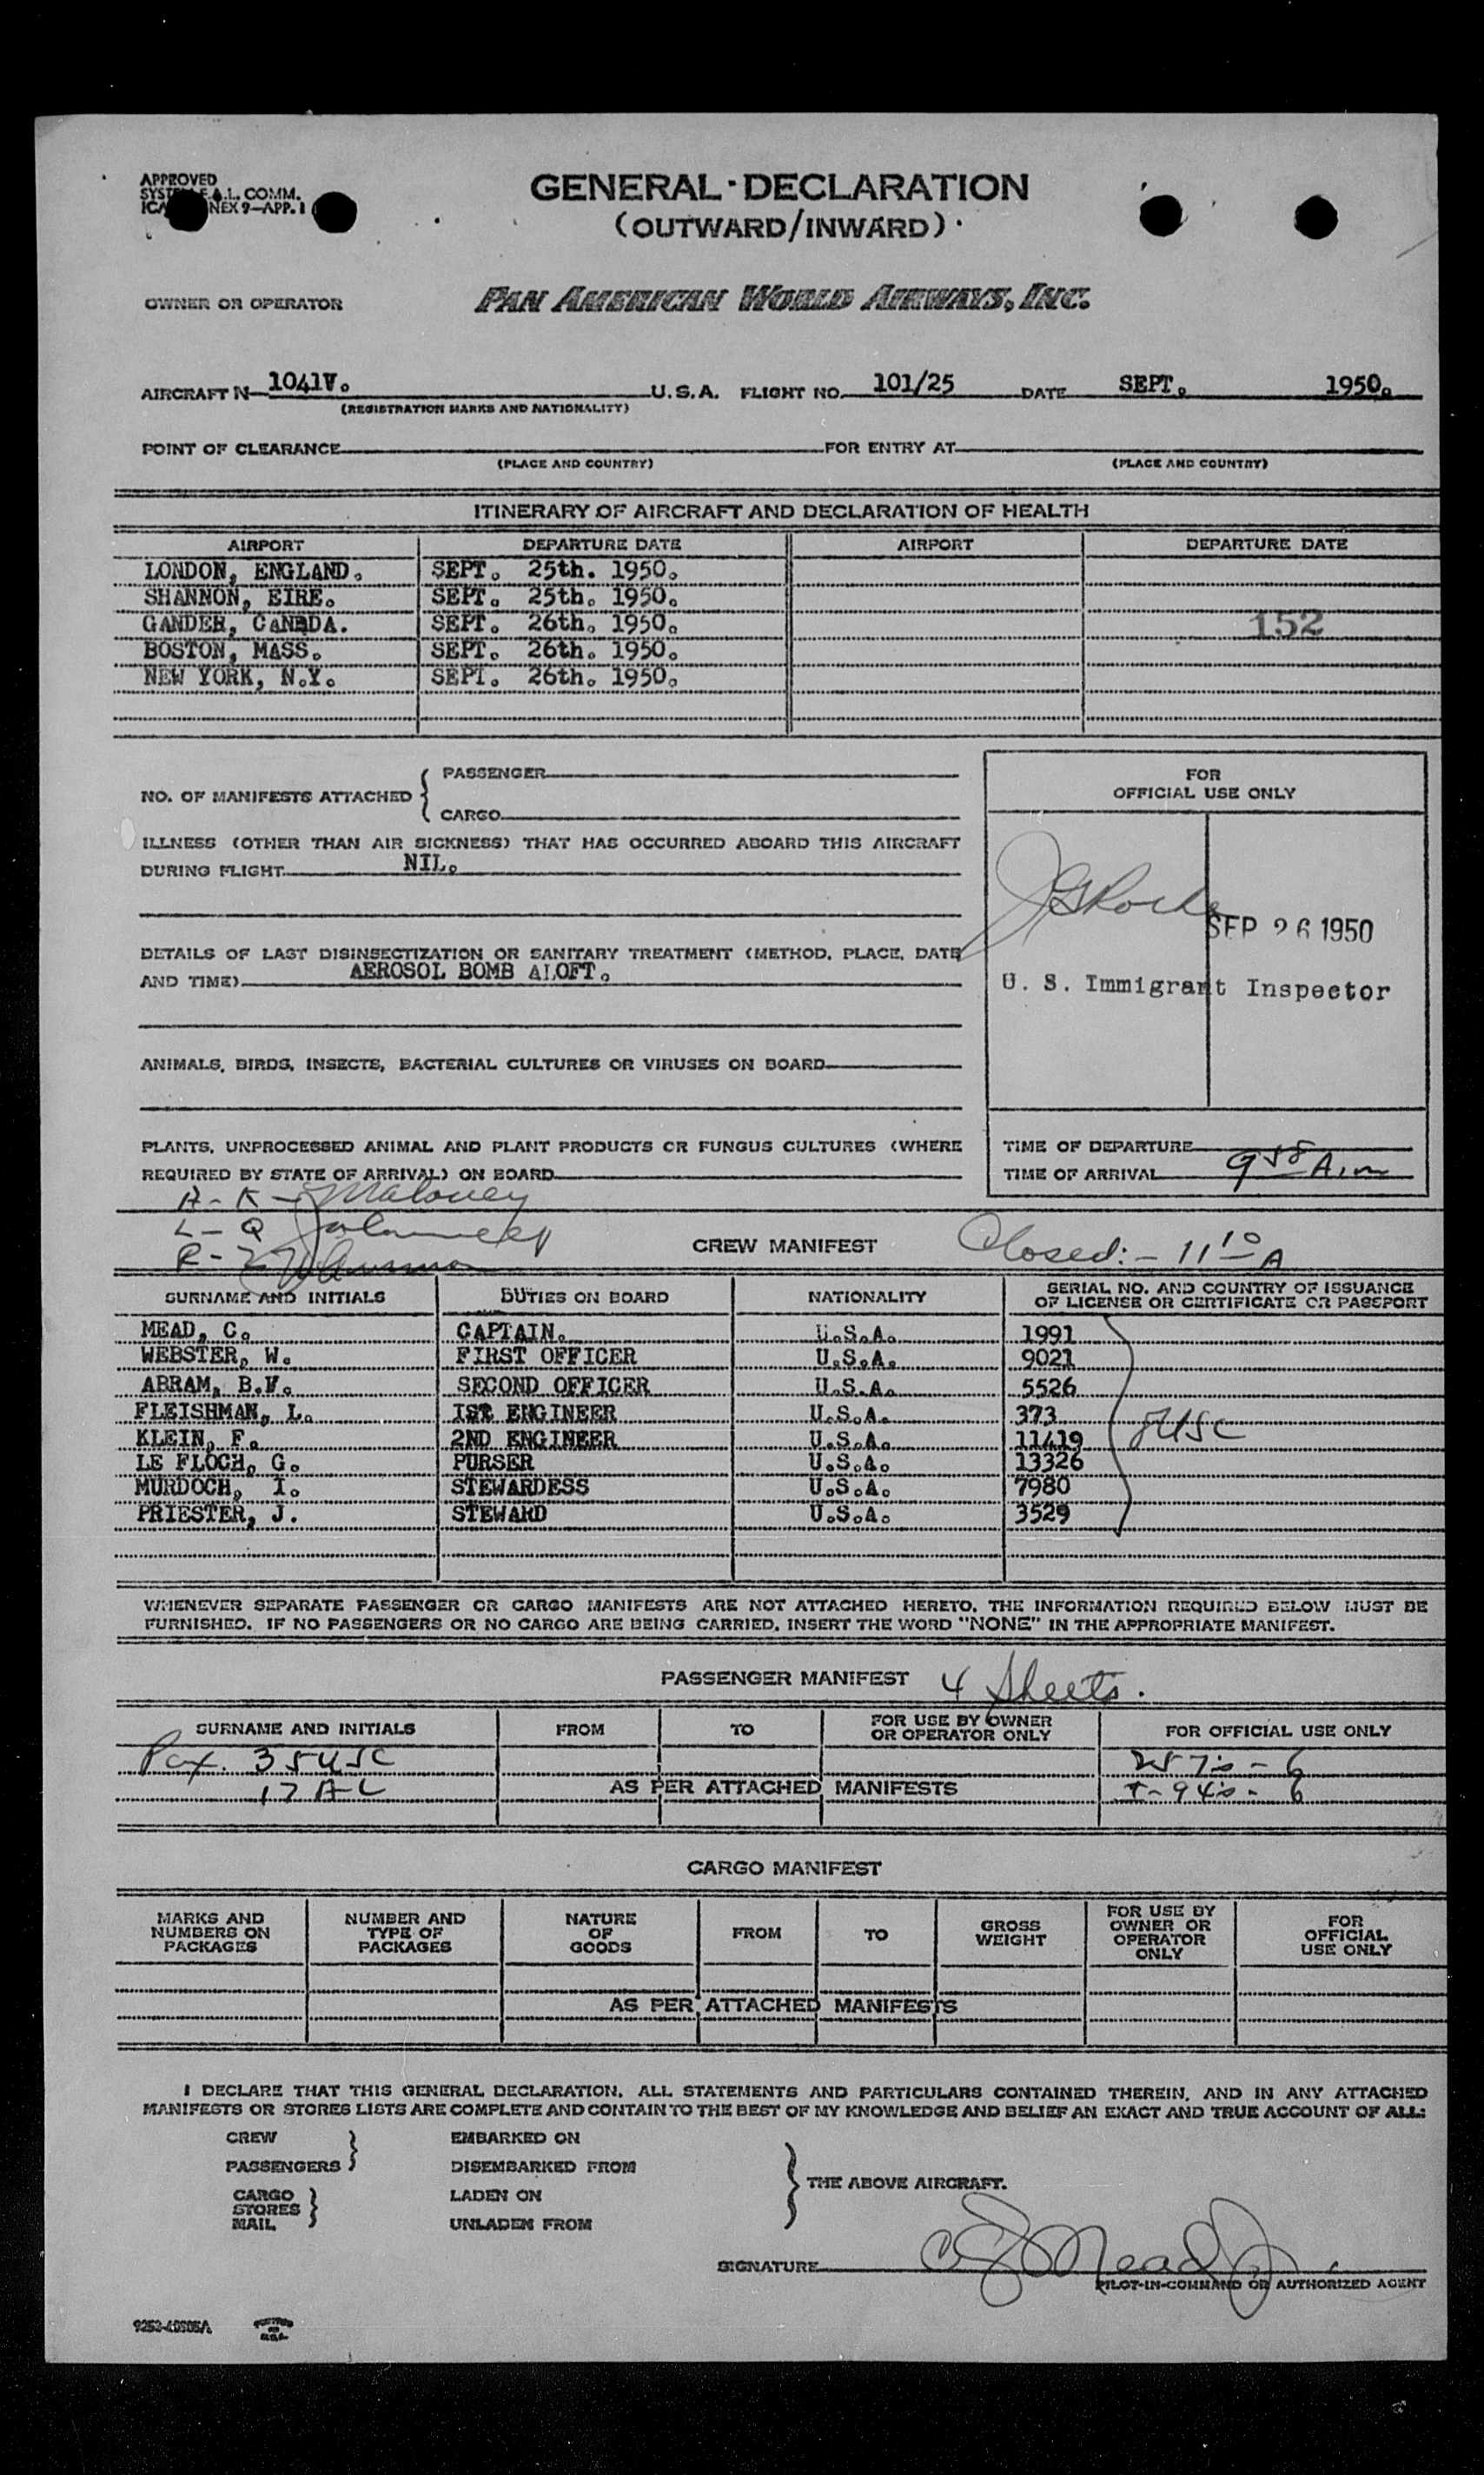 APPROVED
GENERAL DECLARATION
(OUTWARD/INWARD)
OWNER OR OPERATOR PAN AMERICAN WORLD AIRWAYS, INC.
AIRCRAFT N 1041V. U.S.A. FLIGHT NO. 101/25 DATE SEPT. 1950.
(REGISTRATION MARKS AND NATIONALITY)
POINT OF CLEARANCE FOR ENTRY AT
(PLACE AND COUNTRY) (PLACE AND COUNTRY)
ITINERARY OF AIRCRAFT AND DECLARATION OF HEALTH
AIRPORT DEPARTURE DATE AIRPORT DEPARTURE DATE
LONDON, ENGLAND. SEPT. 25th. 1950.
SHANNON, EIRE. SEPT. 25th. 1950.
GANDER, CANADA. SEPT. 26th. 1950. 152
BOSTON, MASS. SEPT. 26th. 1950.
NEW YORK, N.Y. SEPT. 26th. 1950.
NO. OF MANIFESTS ATTACHED { PASSENGER
CARGO
ILLNESS (OTHER THAN AIR SICKNESS) THAT HAS OCCURRED ABOARD THIS AIRCRAFT
DURING FLIGHT NIL.
DETAILS OF LAST DISINSECTIZATION OR SANITARY TREATMENT (METHOD, PLACE, DATE
AND TIME) AEROSOL BOMB ALOFT.
ANIMALS, BIRDS, INSECTS, BACTERIAL CULTURES OR VIRUSES ON BOARD
PLANTS, UNPROCESSED ANIMAL AND PLANT PRODUCTS OR FUNGUS CULTURES (WHERE
REQUIRED BY STATE OF ARRIVAL) ON BOARD
FOR
OFFICIAL USE ONLY
SEP 26 1950
U. S. Immigrant Inspector
TIME OF DEPARTURE
TIME OF ARRIVAL 9 58 A.m
A-K - Maloney
L-Q
R-Z
CREW MANIFEST Closed:- 11 10 A
SURNAME AND INITIALS DUTIES ON BOARD NATIONALITY SERIAL NO. AND COUNTRY OF ISSUANCE
OF LICENSE OR CERTIFICATE OR PASSPORT
MEAD, C. CAPTAIN. U.S.A. 1991
WEBSTER, W. FIRST OFFICER U.S.A. 9021
ABRAM, B.V. SECOND OFFICER U.S.A. 5526
FLEISHMAN, L. IST ENGINEER U.S.A. 373
KLEIN, F. 2ND ENGINEER U.S.A. 11419 8 USC
LE FLOCH, G. PURSER U.S.A. 13326
MURDOCH, I. STEWARDESS U.S.A. 7980
PRIESTER, J. STEWARD U.S.A. 3529
WHENEVER SEPARATE PASSENGER OR CARGO MANIFESTS ARE NOT ATTACHED HERETO, THE INFORMATION REQUIRED BELOW MUST BE
FURNISHED. IF NO PASSENGERS OR NO CARGO ARE BEING CARRIED, INSERT THE WORD "NONE" IN THE APPROPRIATE MANIFEST.
PASSENGER MANIFEST 4 Sheets.
SURNAME AND INITIALS FROM TO FOR USE BY OWNER
OR OPERATOR ONLY FOR OFFICIAL USE ONLY
Pax. 35 USC 257's - 6
17 AL AS PER ATTACHED MANIFESTS I-94's - 6
CARGO MANIFEST
MARKS AND
NUMBERS ON
PACKAGES
NUMBER AND
TYPE OF
PACKAGES
NATURE
OF
GOODS
FROM
TO
GROSS
WEIGHT
FOR USE BY
OWNER OR
OPERATOR
ONLY
FOR
OFFICIAL
USE ONLY
AS PER ATTACHED MANIFESTS
I DECLARE THAT THIS GENERAL DECLARATION, ALL STATEMENTS AND PARTICULARS CONTAINED THEREIN, AND IN ANY ATTACHED
MANIFESTS OR STORES LISTS ARE COMPLETE AND CONTAIN TO THE BEST OF MY KNOWLEDGE AND BELIEF AN EXACT AND TRUE ACCOUNT OF ALL:
CREW EMBARKED ON
PASSENGERS DISEMBARKED FROM
THE ABOVE AIRCRAFT.
CARGO LADEN ON
STORES
MAIL UNLADEN FROM
SIGNATURE Mead
PILOT-IN-COMMAND OR AUTHORIZED AGENT